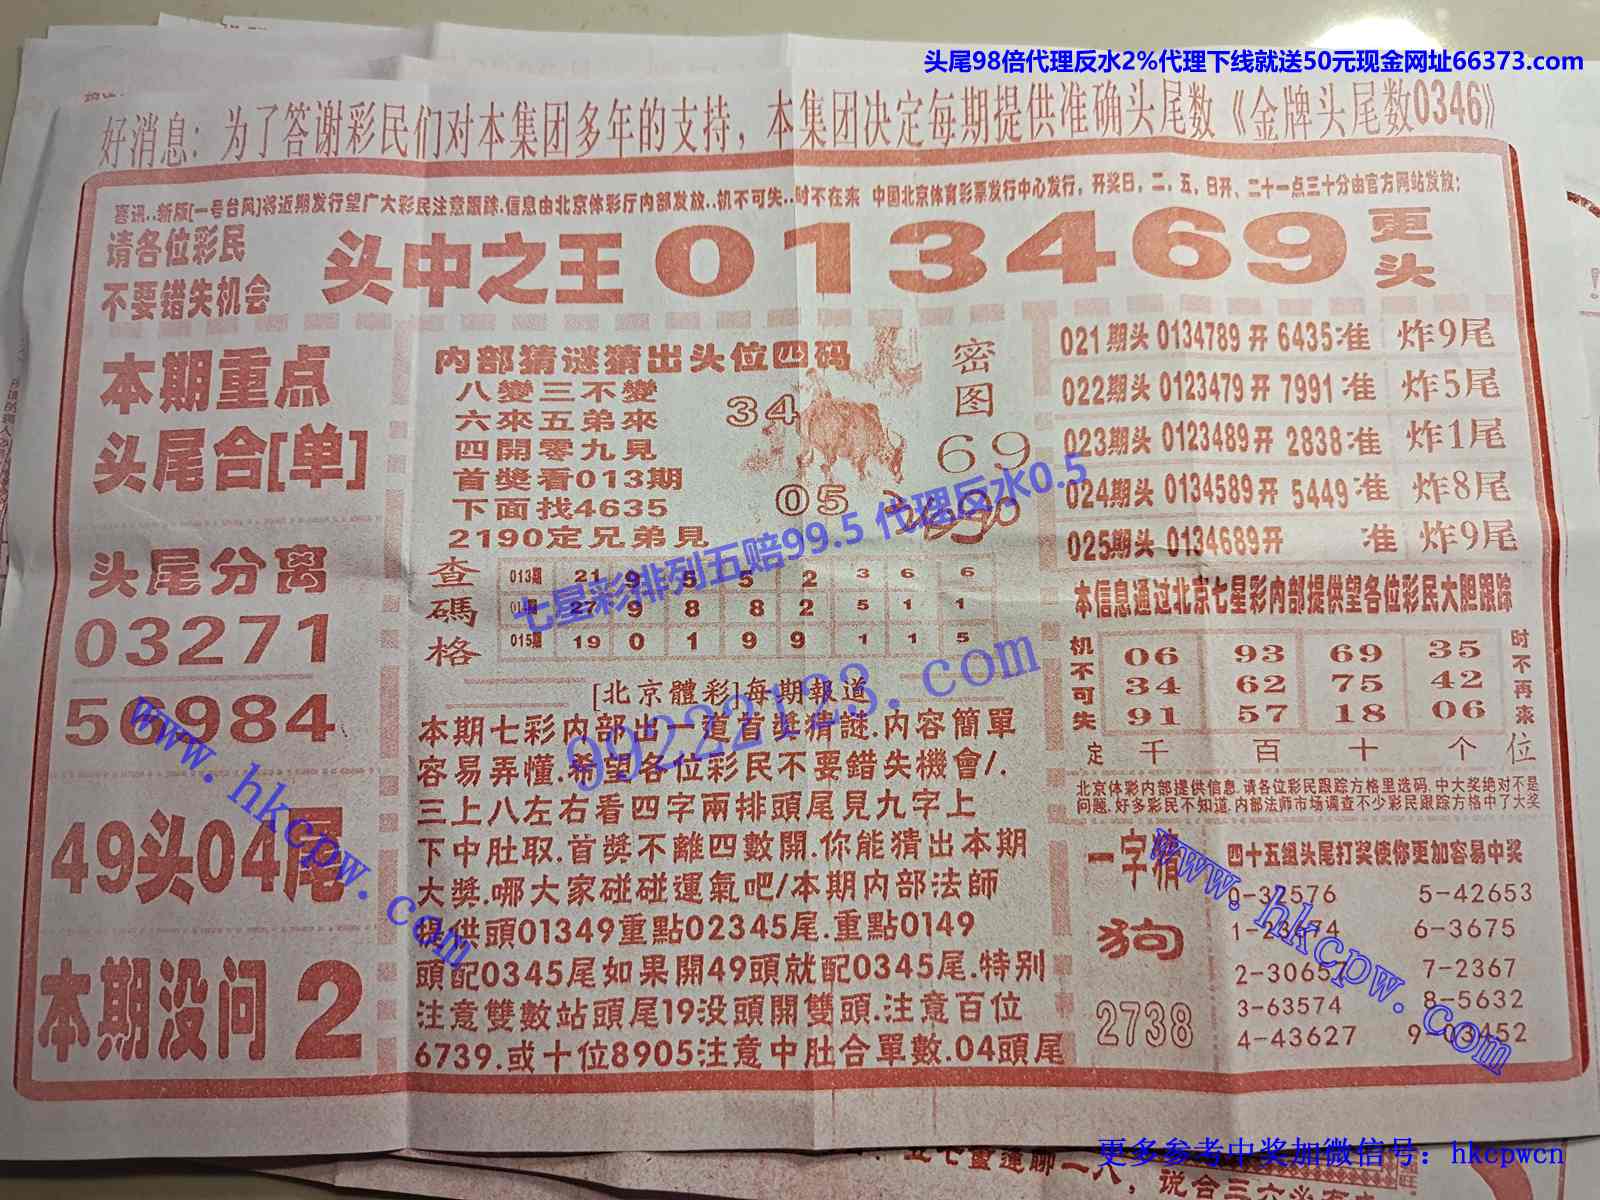 头尾98倍代理反水2%代理下线就送50元现金网址66373.com
好消息：为了答谢彩民们对本集团多年的支持，本集团决定每期提供准确头尾数《金牌头尾数0346》
喜讯..新版[一号台风]将近期发行望广大彩民注意跟踪.信息由北京体彩厅内部发放..机不可失..时不在来 中国北京体育彩票发行中心发行，开奖日，二、五、日开、二十一点三十分由官方网站发放；
请各位彩民
不要错失机会
头中之王013469
更头
本期重点
头尾合[单]
头尾分离
03271
56984
49头04尾
本期没问2
内部猜谜猜出头位四码
八變三不變
六來五弟來
四開零九見
首獎看013期
下面找4635
2190定兄弟見
34
05
密图
69
七星彩排列五赔99.5 代理反水0.5
查碼格
013期 21 9 5 5 2 3 6 6
27 9 8 8 2 5 1 1
015期 19 0 1 9 9 1 1 5
99222123.com
[北京體彩]每期報道
本期七彩内部出一道首獎猜謎.内容簡單
容易弄懂.希望各位彩民不要錯失機會/.
三上八左右看四字兩排頭尾見九字上
下中肚取.首獎不離四數開.你能猜出本期
大獎.哪大家碰碰運氣吧/本期内部法師
提供頭01349重點02345尾.重點0149
頭配0345尾如果開49頭就配0345尾.特别
注意雙數站頭尾19没頭開雙頭.注意百位
6739.或十位8905注意中肚合單數.04頭尾
021期头 0134789 开 6435准 炸9尾
022期头 0123479 开 7991 准 炸5尾
023期头 0123489 开 2838 准 炸1尾
024期头 0134589 开 5449 准 炸8尾
025期头 0134689 开 准 炸9尾
本信息通过北京七星彩内部提供望各位彩民大胆跟踪
机不可失
06 93 69 35
34 62 75 42
91 57 18 06
时不再来
定 千 百 十 个 位
北京体彩内部提供信息.请各位彩民跟踪方格里选码.中大奖绝对不是
问题.好多彩民不知道.内部法师市场调查不少彩民跟踪方格中了大奖
一字猜
狗
2738
四十五组头尾打奖使你更加容易中奖
0-32576 5-42653
6-3675
7-2367
3-63574 8-5632
4-43627
www.hkcpw.com
www.hkcpw.com
更多参考中奖加微信号：hkcpwcn